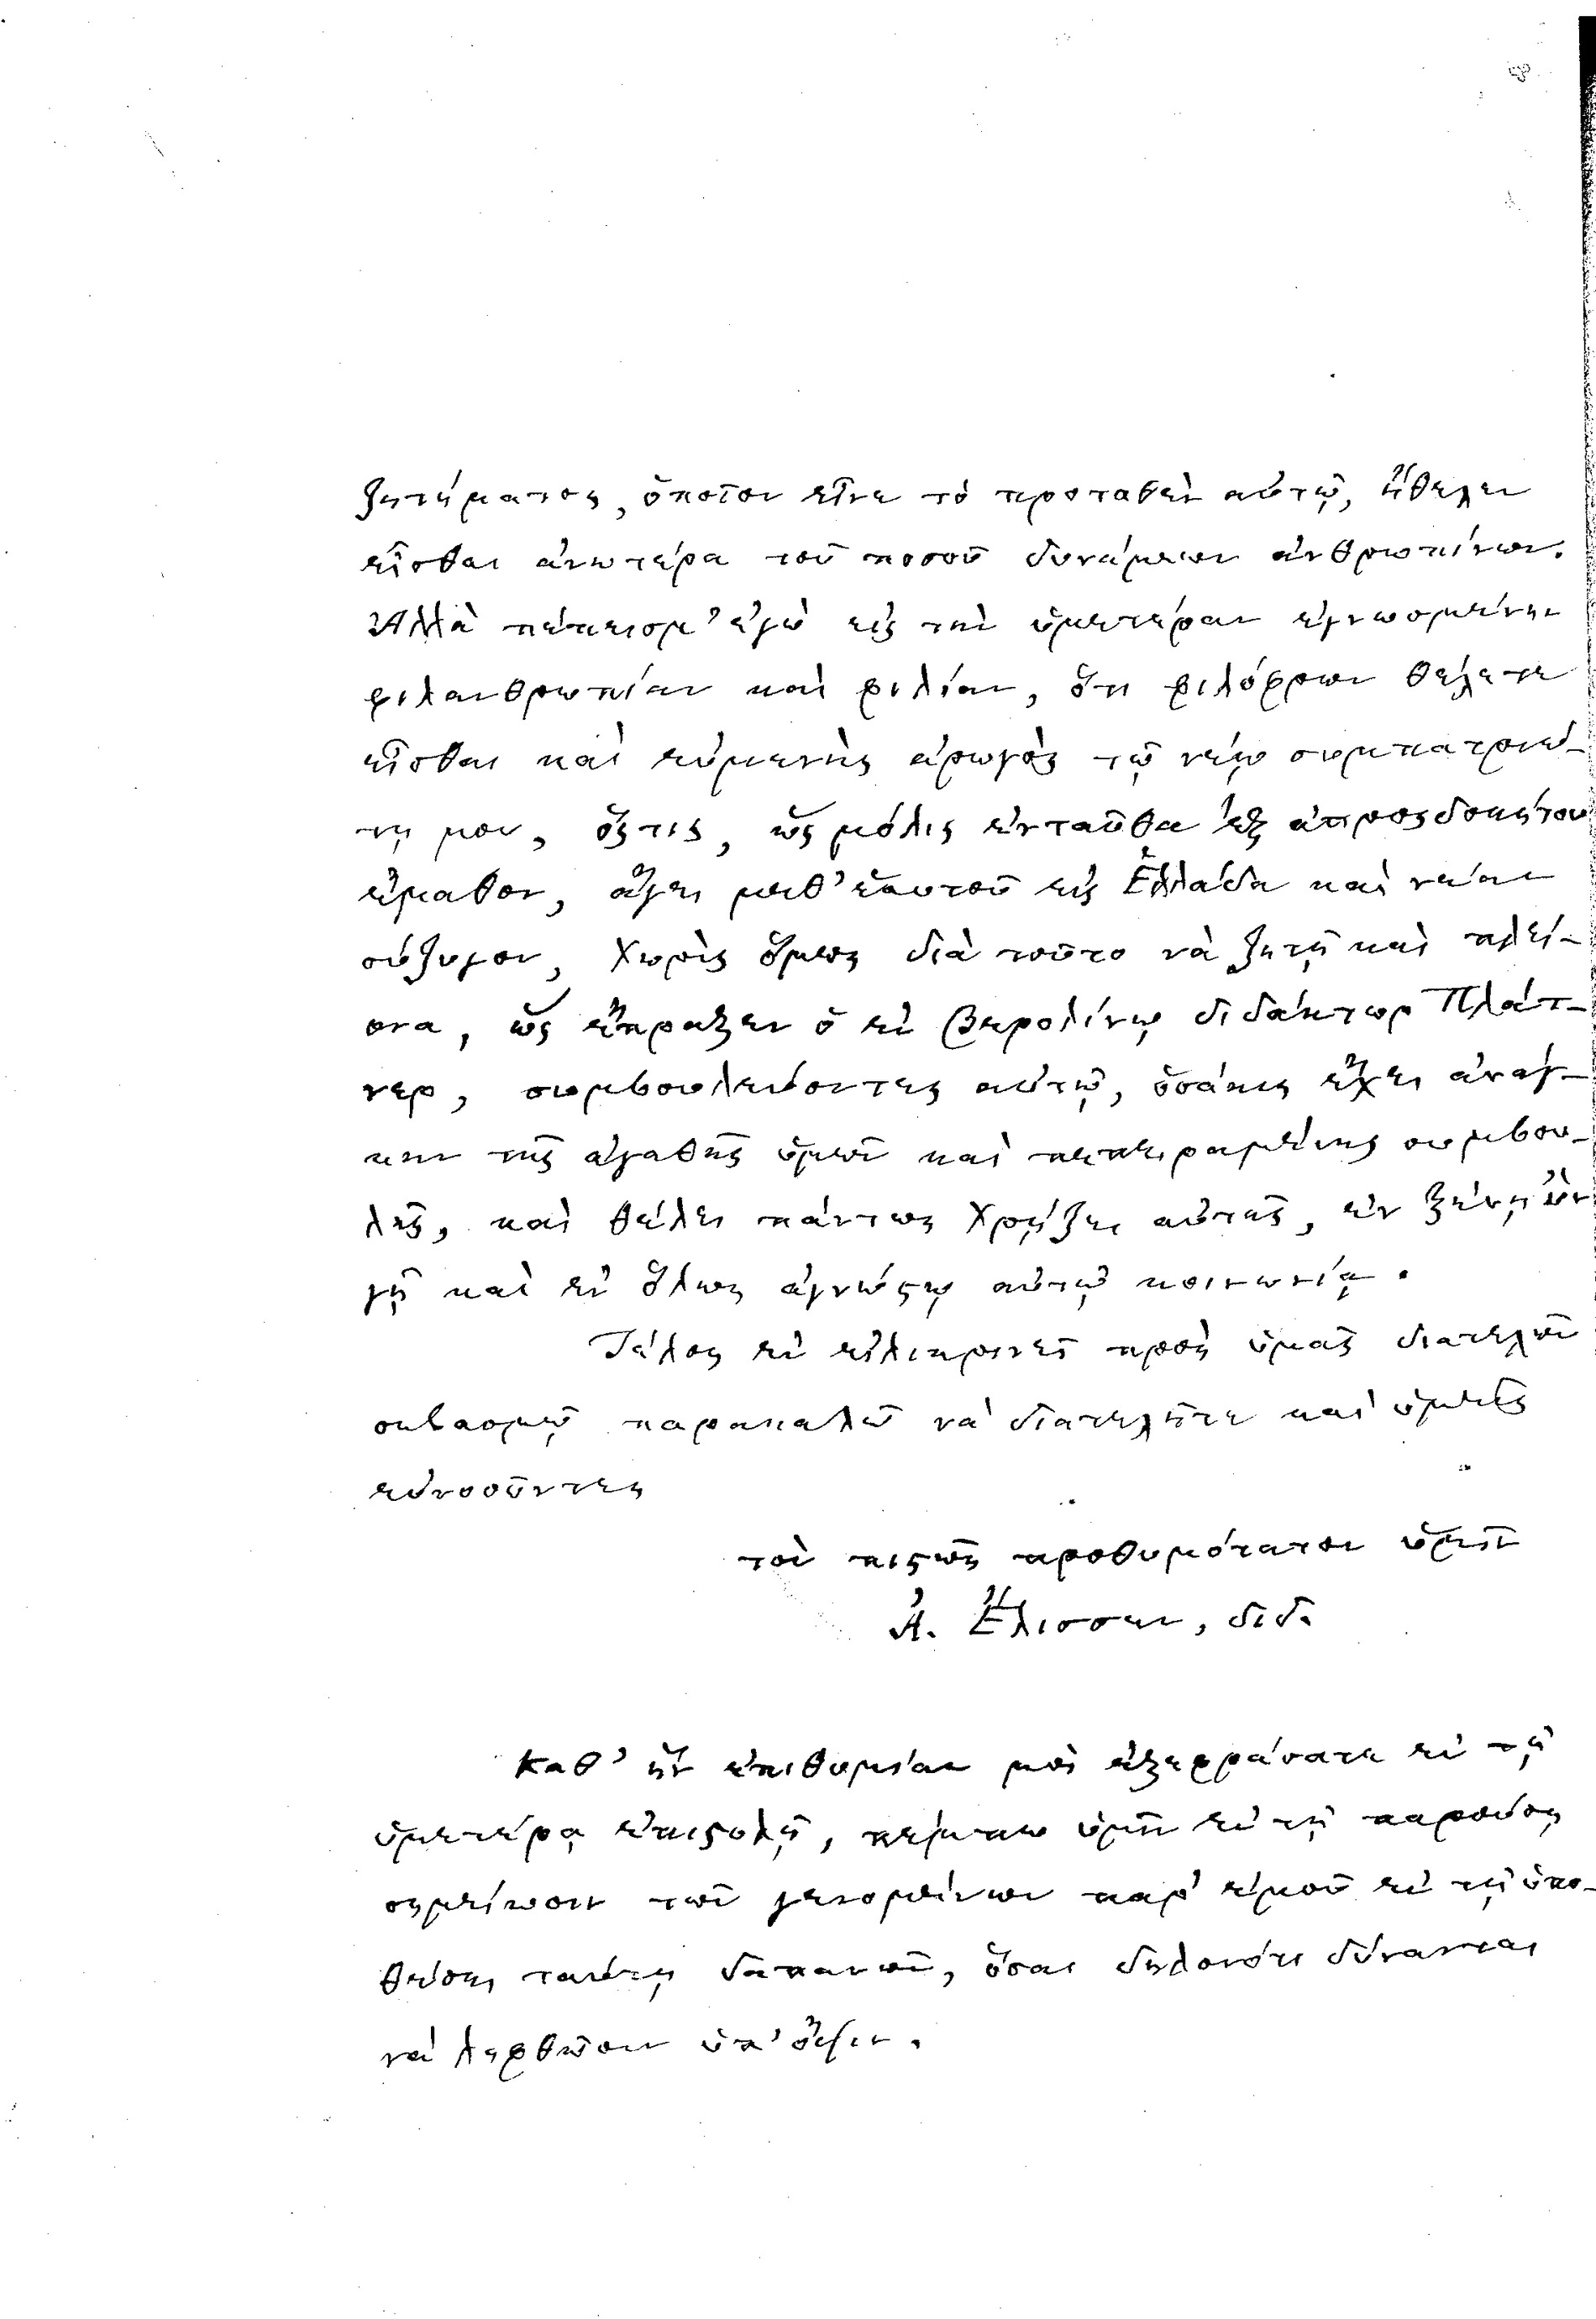 ζητήματος, ὁποῖον εἶνε τὸ προταθὲν αὐτῷ, ἤθελεν
εἶσθαι ἀνωτέρα τοῦ ποσοῦ δυνάμεων ἀνθρωπίνων.
Ἀλλὰ πέπεισμ' ἐγὼ εἰς τὴν ὑμετέραν ἐγνωσμένην
φιλανθρωπίαν καὶ φιλίαν, ὅτι φιλόφρων θέλετε
εἶσθαι καὶ εὐμενὴς ἀρωγὸς τῷ νέῳ συμπατριώ-
τῃ μου, ὅςτις, ὡς μόλις ἐνταῦθα ἐξ ἀπροςδοκήτου
ἔμαθον, ἄγει μεθ' ἑαυτοῦ εἰς Ἑλλάδα καὶ νέαν
σύζυγον, χωρὶς ὅμως διὰ τοῦτο νὰ ζητῇ καὶ πλεί-
ονα, ὡς ἔπραξεν ὁ ἐν Βερολίνῳ διδάκτωρ Πλάτ-
νερ, συμβουλεύοντες αὐτῷ, ὁσάκις ἔχει ἀνάγ-
κην τῆς ἀγαθῆς ὑμῶν καὶ πεπειραμένης συμβου-
λῆς, καὶ θέλει πάντως χρῄζει αὐτῆς, ἐν ξένῃ ὢν
γῇ καὶ ἐν ὅλως ἀγνώςῳ αὐτῷ κοινωνίᾳ.
Τέλος ἐν εἰλικρινεῖ πρὸς ὑμᾶς διατελῶν
σεβασμῷ παρακαλῶ νὰ διατελῆτε καὶ ὑμεῖς
εὐνοοῦντες
τὸν πιςῶς προθυμότατον ὑμῖν
Ἀ. Ἔλισσεν, διδ.
Καθ' ἣν ἐπιθυμίαν μοὶ ἐξεφράσατε ἐν τῇ
ὑμετέρᾳ ἐπιςολῇ, πέμπω ὑμῖν ἐν τῇ παρούσῃ
σημείωσιν τῶν γενομένων παρ' ἐμοῦ ἐν τῇ ὑπο-
θέσει ταύτῃ δαπανῶν, ὅσαι δηλονότι δύνανται
νὰ ληφθῶσιν ὑπ' ὄψιν.